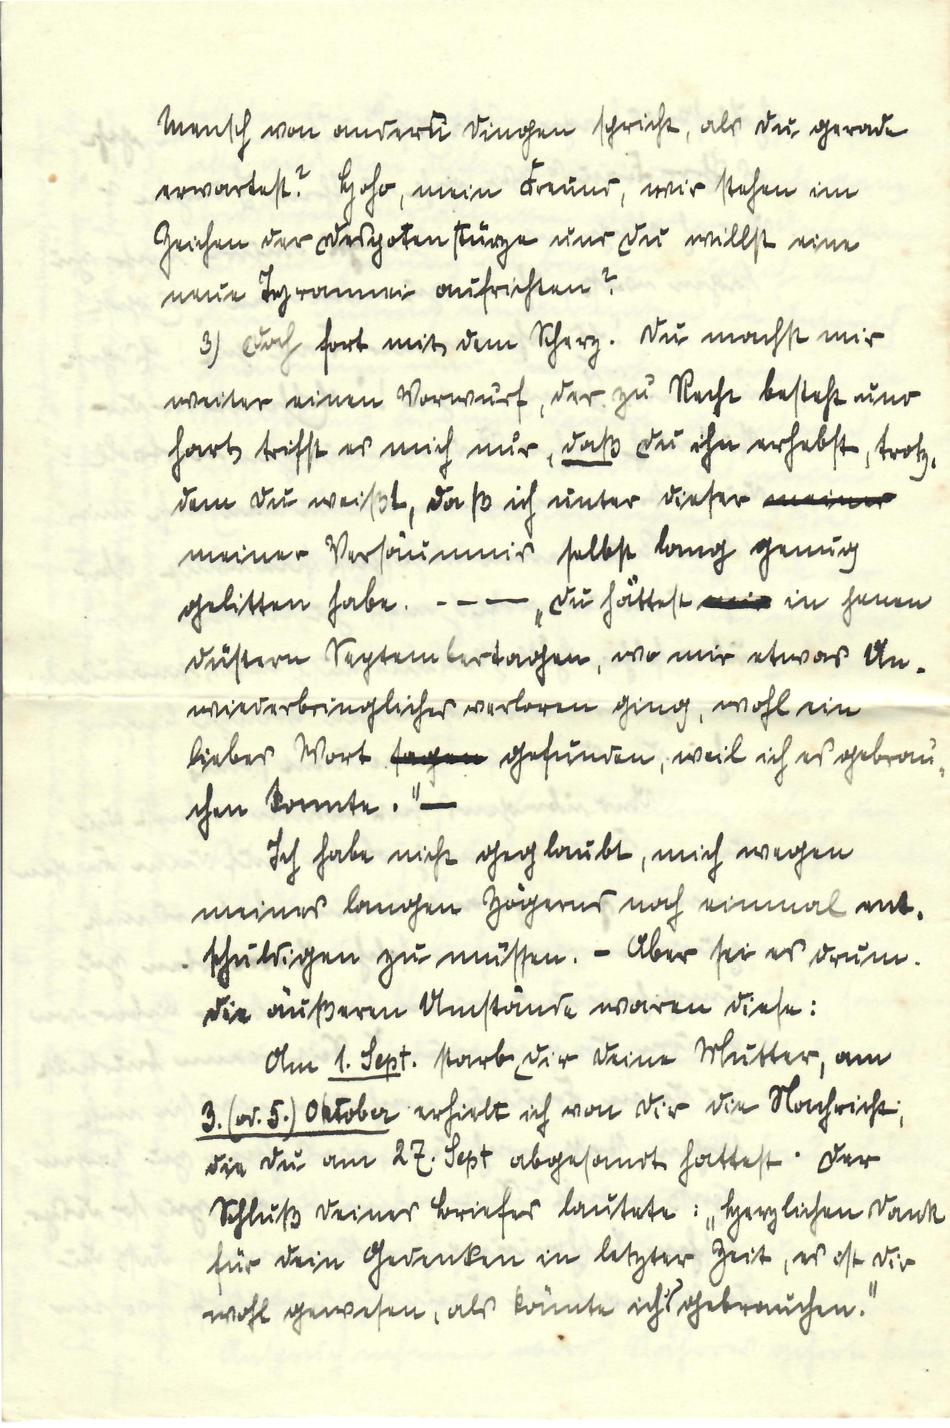 Mensch von andern Dingen spricht, als Du gerade
erwartest? Hoho, mein Freund, wir stehen im
Zeichen der Despotenstürze und Du willst eine
neue Tyrannei aufrichten?
3) Doch fort mit dem Scherz. Du machst mir
weiter einen Vorwurf, der zu Recht besteht und
hart trifft es mich nur, daß Du ihn erhebst, trotz-
dem Du weißt, daß ich unter dieser meiner
meiner Versäumnis selbst lang genug
gelitten habe. - - — „Du hättest mir in jenen
düstern Septembertagen, wo mir etwas Un-
wiederbringliches verloren ging, wohl ein
liebes Wort sagen gefunden, weil ich es gebrau-
chen konnte." —
Ich habe nicht geglaubt, mich wegen
meines langen Zögerns noch einmal ent-
schuldigen zu müssen. - Aber sei es drum.
Die äußeren Umstände waren diese:
Am 1. Sept. starb Dir Deine Mutter, am
3. (od. 5.) Oktober erhielt ich von Dir die Nachricht,
die Du am 27. Sept abgesandt hattest. Der
Schluß Deines Briefes lautete: „Herzlichen Dank
für Dein Gedenken in letzter Zeit, es ist Dir
wohl gewesen, als könnte ich's gebrauchen."